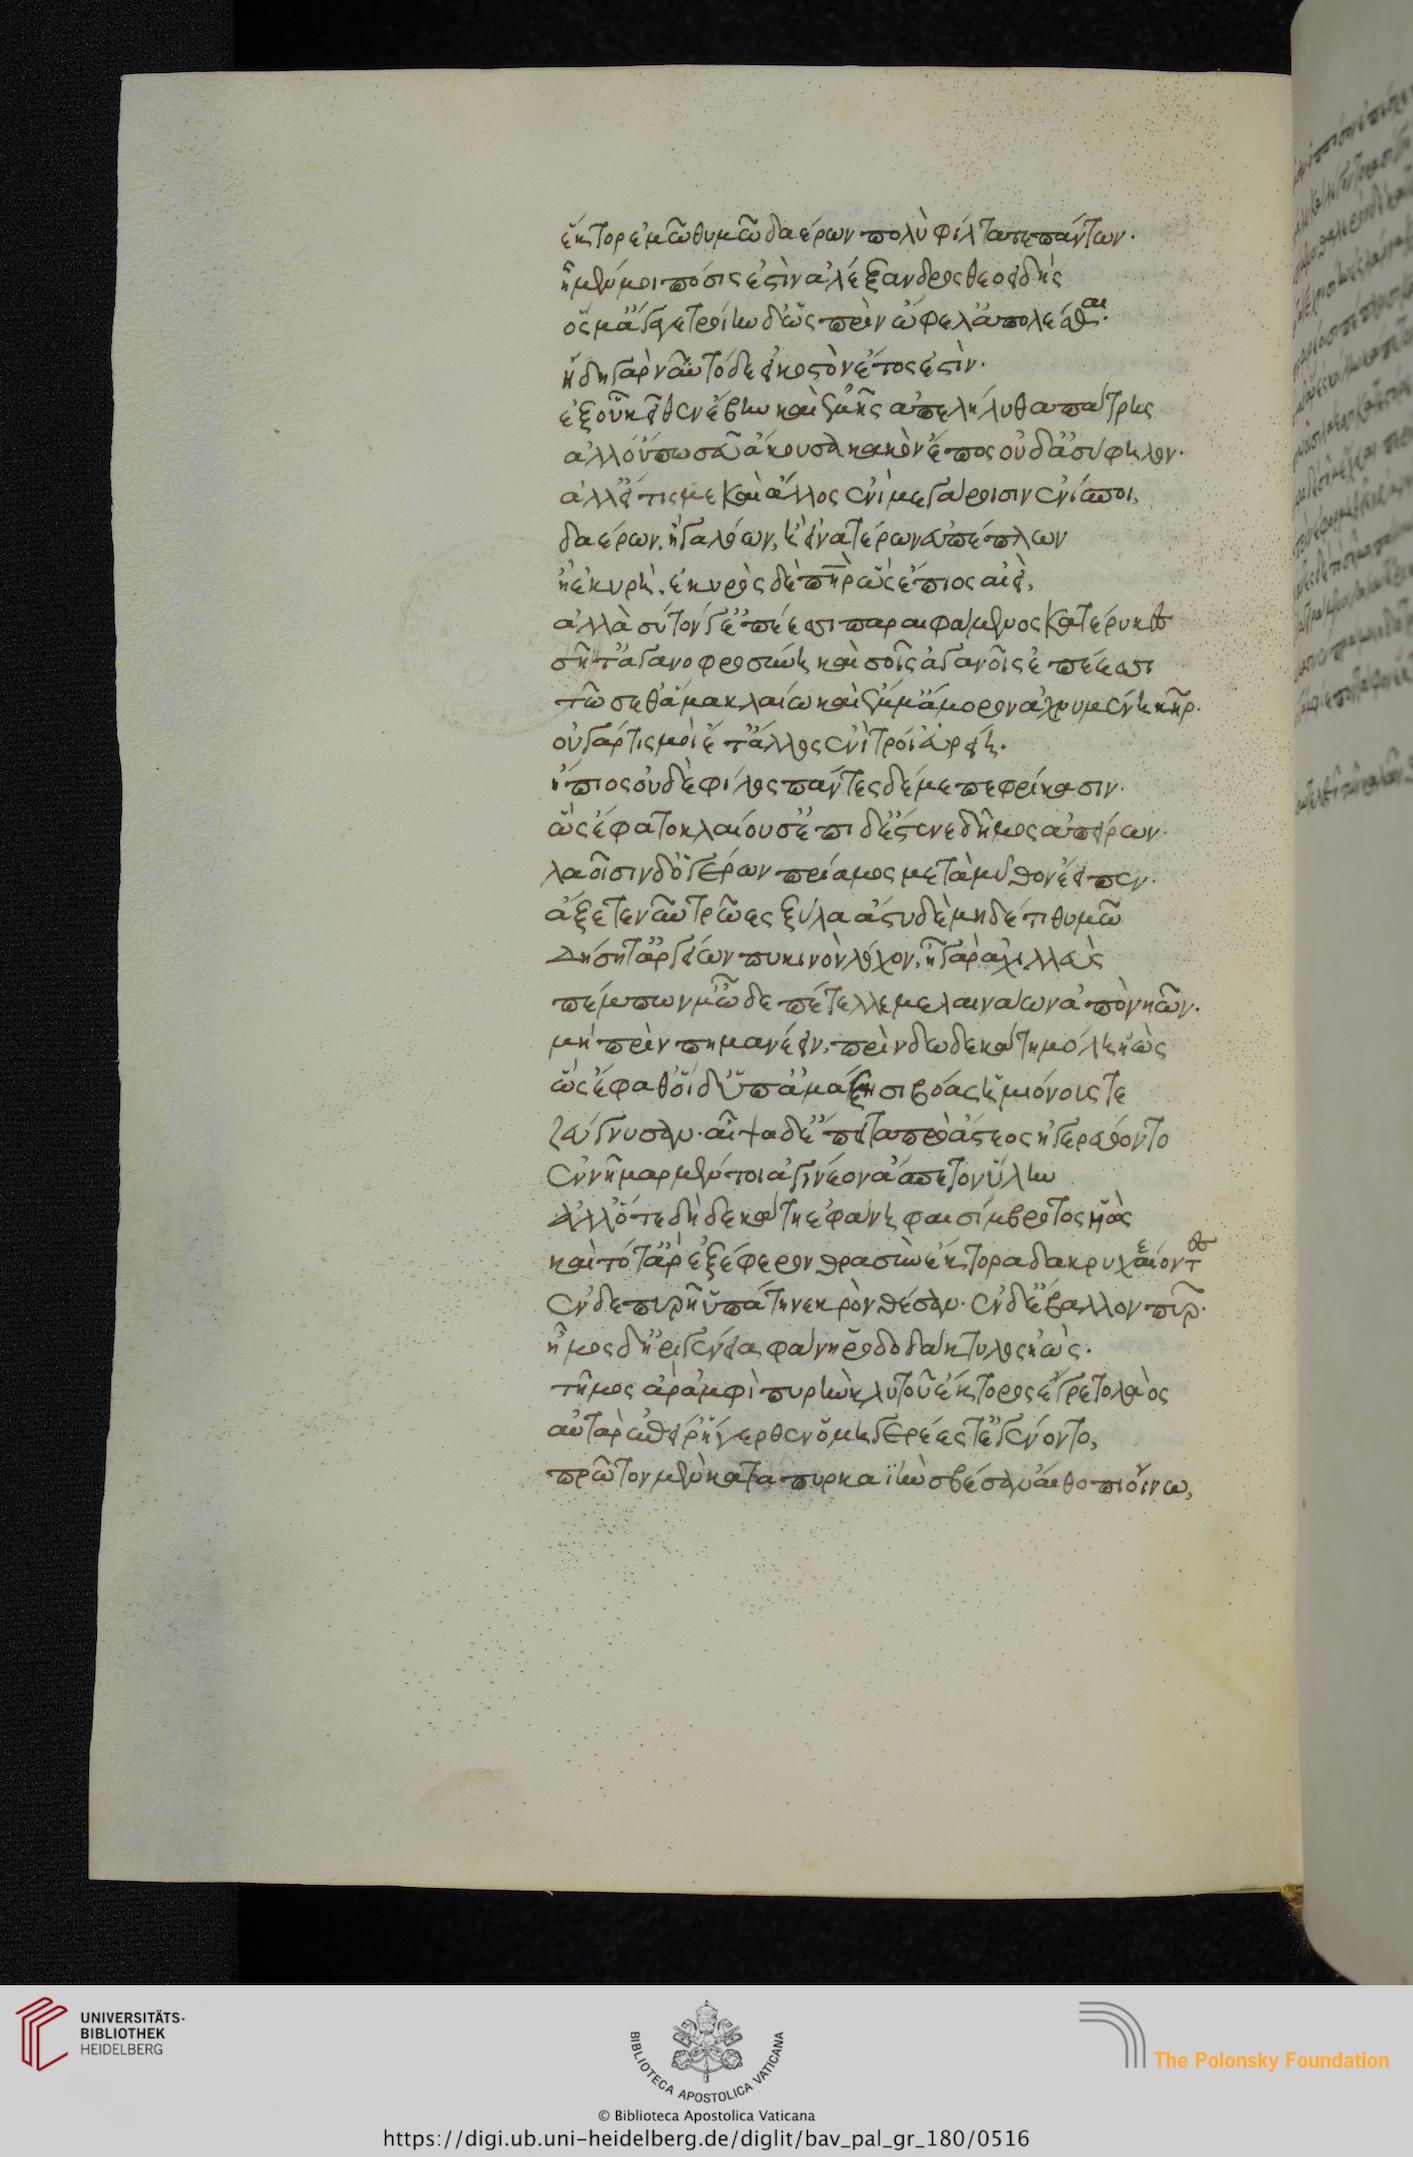 ἕκτορ ἐμῶ θυμῶ δαέρων πολὺ φίλτατε πάντων.
ἦ μέν μοι πόσις ἐστὶν ἀλέξανδρος θεοειδὴς
ὅς μ' ἄγαγε τροίην δ' ὡς πρὶν ὤφελλ' ἀπολέσθαι.
ἤδη γὰρ νῦν μοι τόδε εἰκοστὸν ἔτος ἐστὶν.
ἐξ οὗ κεῖθεν ἔβην καὶ ἐμῆς ἀπελήλυθα πάτρης
ἀλλ' οὔπω σεῦ ἄκουσα κακὸν ἔπος οὐδ' ἀσύφηλον.
ἀλλ' εἴ τίς με καὶ ἄλλος ἐνὶ μεγάροισιν ἐνίπτοι,
δαέρων, ἢ γαλόων, ἢ εἰνατέρων εὐπέπλων
ἢ ἑκυρὴ. ἑκυρὸς δὲ πατὴρ ὣς ἤπιος αἰεὶ,
ἀλλὰ σὺ τόν γ' ἐπέεσσι παραιφάμενος κατέρυκες
σῆ τ' ἀγανοφροσύνη καὶ σοῖς ἀγανοῖς ἐπέεσσι
τῶ σέ θ' ἅμα κλαίω καὶ ἔμ' ἄμμορον ἀχνυμένη κῆρ.
οὐ γάρ τίς μοι ἔτ' ἄλλος ἐνὶ τροίη εὐρείη.
ἤπιος οὐδὲ φίλος πάντες δέ με πεφρίκασιν.
ὣς ἔφατο κλαίουσ' ἐπὶ δ' ἔστενε δῆμος ἀπείρων.
λαοῖσιν δ' ὁ γέρων πρίαμος μετὰ μῦθον ἔειπεν.
ἄξετε νῦν τρῶες ξύλα ἄστυ δὲ μηδέ τι θυμῶ
δείσητ' ἀργείων πυκινὸν λόχον, ἦ γὰρ ἀχιλλεὺς
πέμπων μ' ὧδε πέτελλε μελαινάων ἀπὸ νηῶν.
μὴ πρὶν πημανέειν, πρὶν δωδεκάτη μόλη ἠὼς
ὣς ἔφαθ' οἱ δ' ὑπ' ἀμάξησι βόας ἡμιόνους τε
ζεύγνυσαν. αἶψα δ' ἔπειτα πρὸ ἄστεος ἠγερέθοντο
ἐννῆμαρ μέν τοι ἀγίνεον ἄσπετον ὕλην
ἀλλ' ὅτε δὴ δεκάτη ἐφάνη φαεσίμβροτος ἠὼς
καὶ τότ' ἄρ' ἐξέφερον θρασὺν ἕκτορα δακρυχέοντες
ἐν δὲ πυρῆ ὑπάτη νεκρὸν θέσαν. ἐν δ' ἔβαλλον πῦρ.
ἦμος δ' ἠριγένεια φάνη ῥοδοδάκτυλος ἠὼς.
τῆμος ἄρ' ἀμφὶ πυρὴν κλυτοῦ ἕκτορος ἔγρετο λαὸς
αὐτὰρ ἐπεί ῥ' ἤγερθεν ὁμηγερέες τ' ἐγένοντο,
πρῶτον μὲν κατὰ πυρκαϊὴν σβέσαν αἴθοπι οἴνω,
UNIVERSITÄTS-
BIBLIOTHEK
HEIDELBERG
BIBLIOTECA APOSTOLICA VATICANA
The Polonsky Foundation
© Biblioteca Apostolica Vaticana
https://digi.ub.uni-heidelberg.de/diglit/bav_pal_gr_180/0516